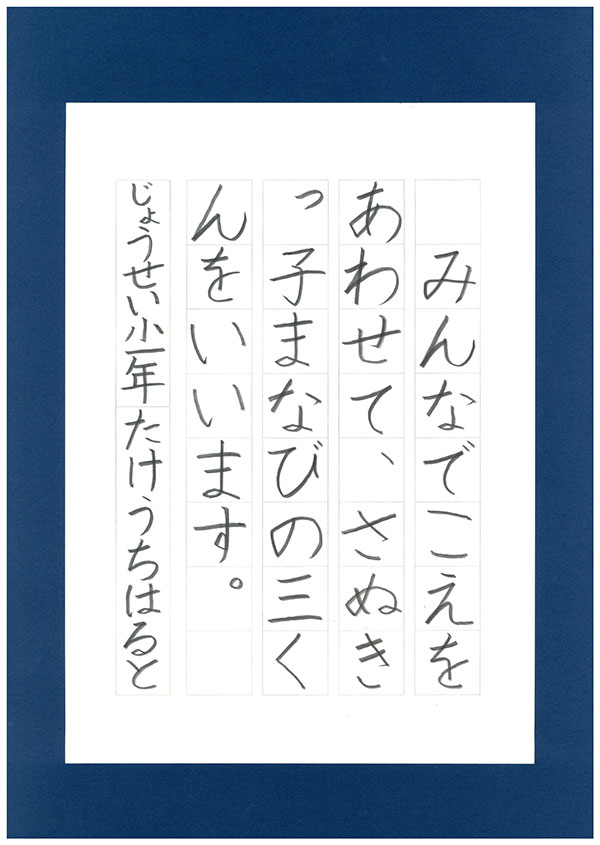 みんなでこえを
あわせて、さぬき
っ子まなびの三く
んをいいます。
じょうせい小一年たけうちはると